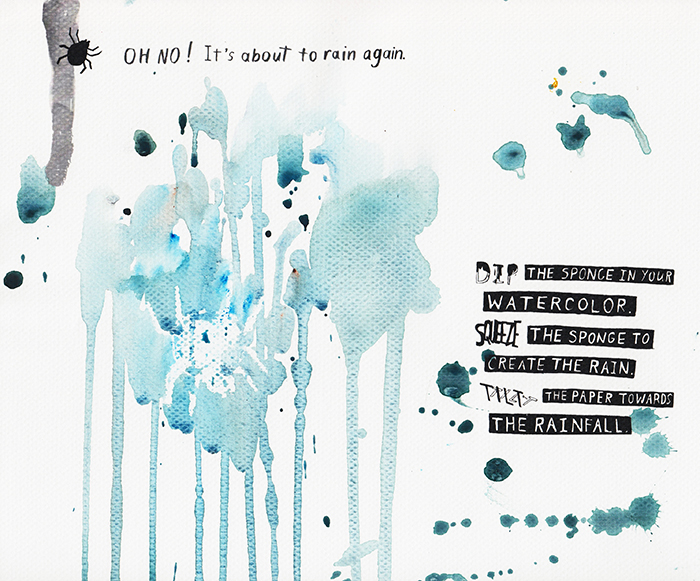 OH NO! It's about to rain again.
DIP THE SPONGE IN YOUR
WATERCOLOR.
SQUEEZE THE SPONGE TO
CREATE THE RAIN.
TILT THE PAPER TOWARDS
THE RAINFALL.